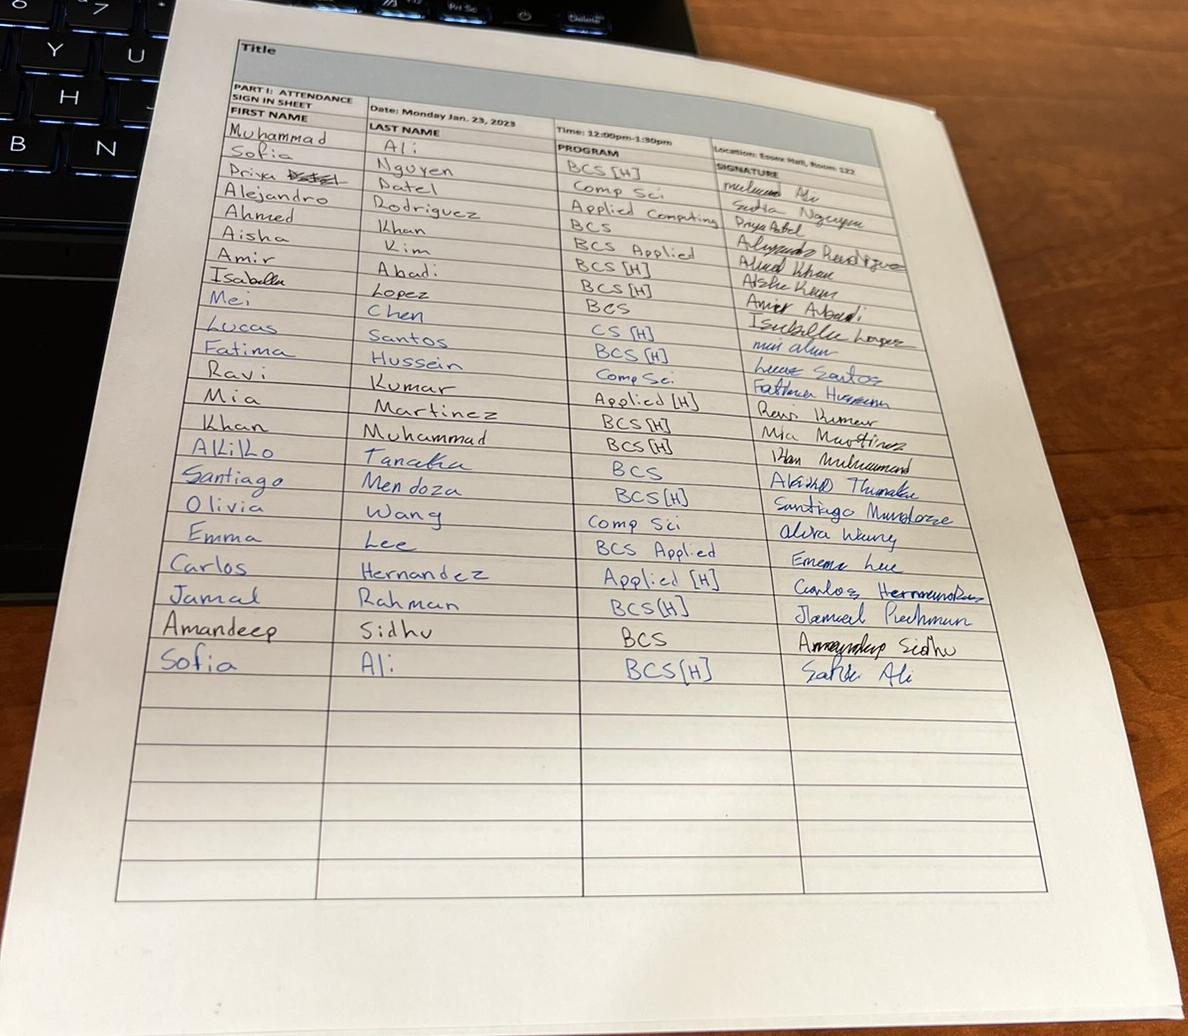 Y U
H
B N
Delete
Title
PART I: ATTENDANCE SIGN IN SHEET Date: Monday Jan. 23, 2023 Time: 12:00pm-1:30pm Location: Essex Hall, Room 122
FIRST NAME LAST NAME PROGRAM SIGNATURE
Muhammad Ali BCS [H] Ali
Sofia Nguyen Comp Sci Nguyen
Priya Patel Applied Computing Priya Patel
Alejandro Rodriguez BCS
Ahmed Khan BCS Applied Khan
Aisha Kim BCS [H]
Amir Abadi BCS [H] Amir Abadi
Isabella Lopez BCS Isabella Lopez
Mei Chen CS [H]
Lucas Santos BCS [H] Lucas Santos
Fatima Hussein Comp Sci
Ravi Kumar Applied [H] Ravi Kumar
Mia Martinez BCS [H] Mia Martinez
Khan Muhammad BCS [H] Khan Muhammad
Akiko Tanaka BCS
Santiago Mendoza BCS [H] Santiago
Olivia Wang Comp Sci Wang
Emma Lee BCS Applied Lee
Carlos Hernandez Applied [H] Carlos
Jamal Rahman BCS [H]
Amandeep Sidhu BCS Sidhu
Sofia Ali BCS [H] Ali